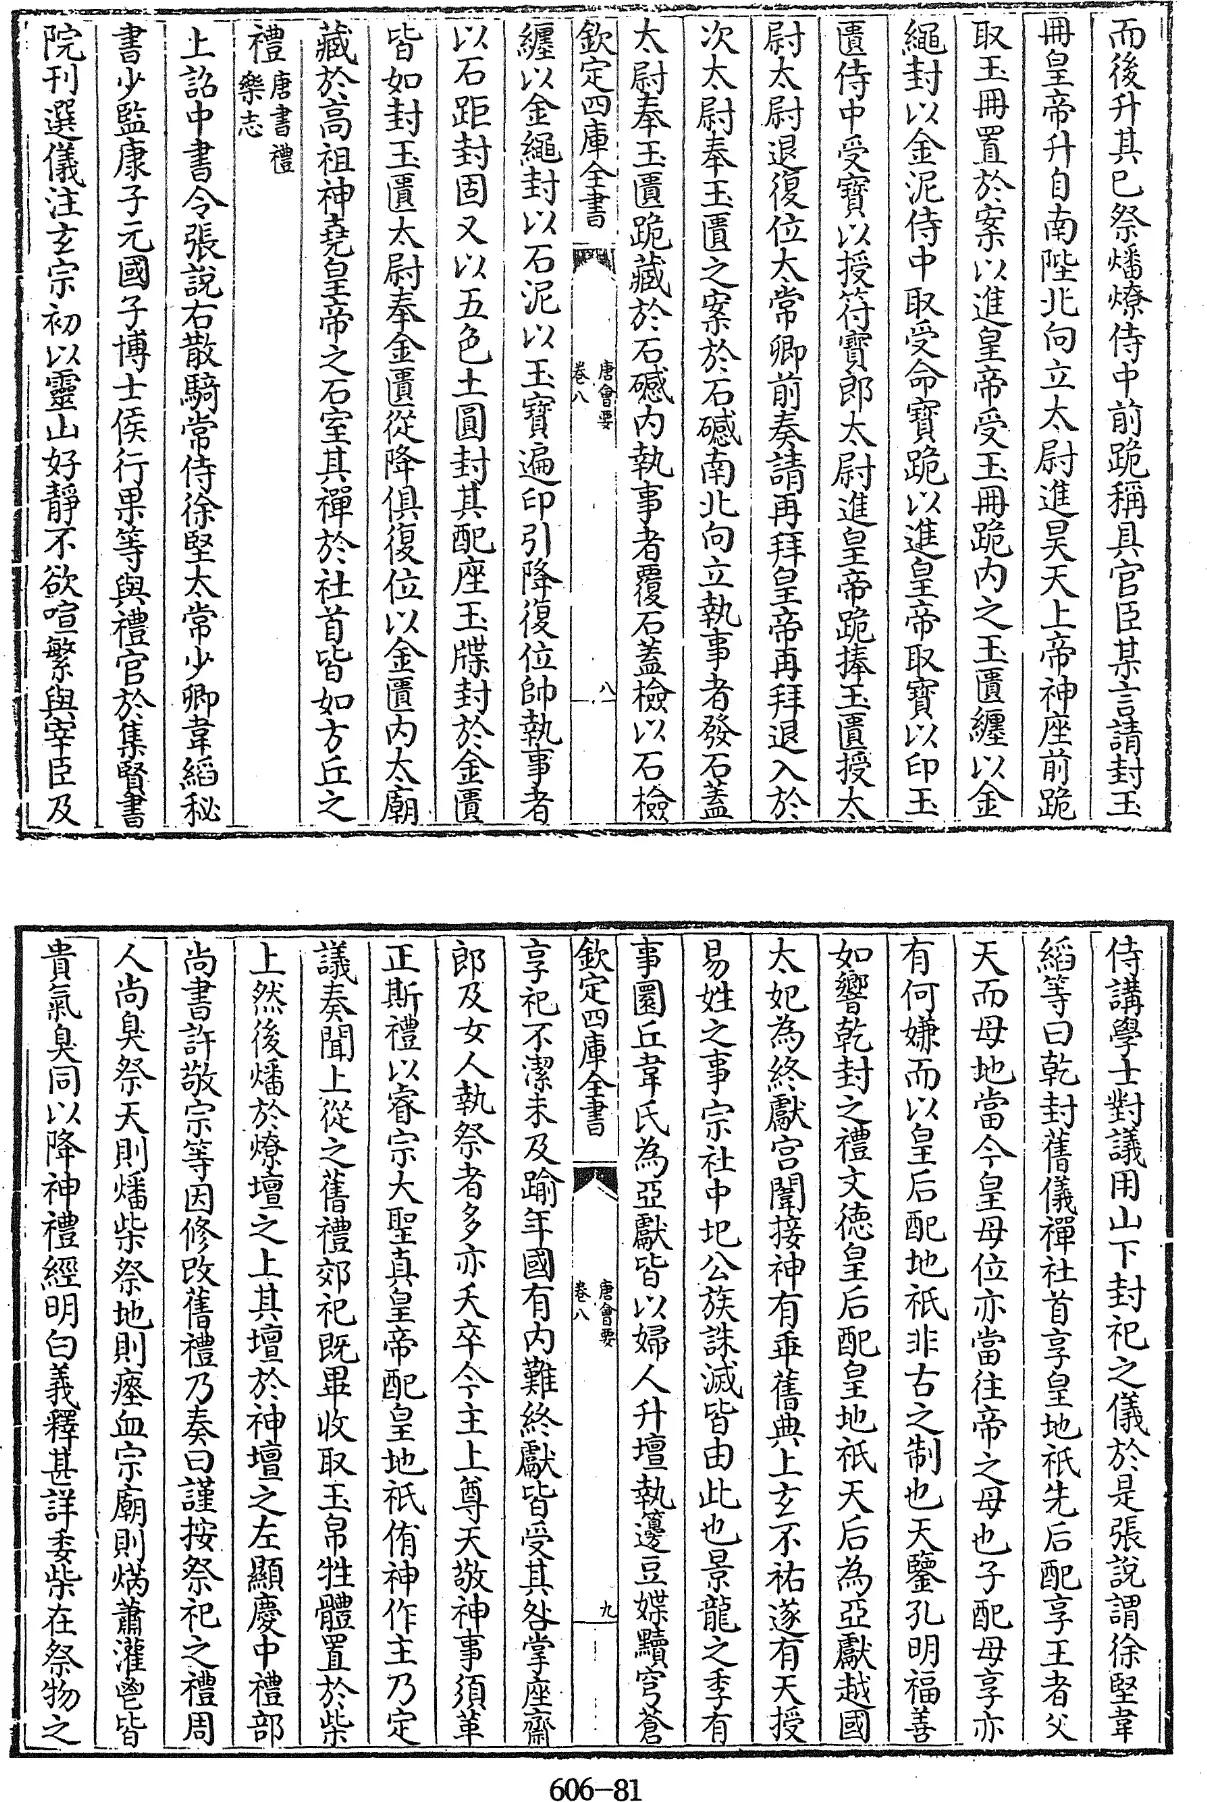 而後升其已祭燔燎侍中前跪稱具官臣某言請封玉
冊皇帝升自南陛北向立太尉進昊天上帝神座前跪
取玉冊置於案以進皇帝受玉冊跪内之玉匱纒以金
繩封以金泥侍中取受命寶跪以進皇帝取寶以印玉
匱侍中受寶以授符寶郎太尉進皇帝跪捧玉匱授太
尉太尉退復位太常卿前奏請再拜皇帝再拜退入於
次太尉奉玉匱之案於石䃭南北向立執事者發石蓋
太尉奉玉匱跪藏於石䃭内執事者覆石蓋檢以石檢
欽定四庫全書
唐會要
卷八
八
纒以金繩封以石泥以玉寶遍印引降復位帥執事者
以石距封固又以五色土圓封其配座玉牒封於金匱
皆如封玉匱太尉奉金匱從降俱復位以金匱内太廟
藏於高祖神堯皇帝之石室其禪於社首皆如方丘之
禮唐書禮
樂志
上詔中書令張說右散騎常侍徐堅太常少卿韋縚秘
書少監康子元國子博士侯行果等與禮官於集賢書
院刊選儀注玄宗初以靈山好靜不欲喧繁與宰臣及
侍講學士對議用山下封祀之儀於是張說謂徐堅韋
縚等曰乾封舊儀禪社首享皇地祇先后配享王者父
天而母地當今皇母位亦當往帝之母也子配母享亦
有何嫌而以皇后配地祇非古之制也天鑒孔明福善
如響乾封之禮文德皇后配皇地祇天后為亞獻越國
太妃為終獻宫闈接神有乖舊典上玄不祐遂有天授
易姓之事宗社中圮公族誅滅皆由此也景龍之季有
事圜丘韋氏為亞獻皆以婦人升壇執籩豆媟黷穹蒼
欽定四庫全書
唐會要
卷八
九
享祀不潔未及踰年國有内難終獻皆受其咎掌座齋
郎及女人執祭者多亦夭卒今主上尊天敬神事須革
正斯禮以睿宗大聖真皇帝配皇地祇侑神作主乃定
議奏聞上從之舊禮郊祀既畢收取玉帛牲體置於柴
上然後燔於燎壇之上其壇於神壇之左顯慶中禮部
尚書許敬宗等因修改舊禮乃奏曰謹按祭祀之禮周
人尚臭祭天則燔柴祭地則瘞血宗廟則焫蕭灌鬯皆
貴氣臭同以降神禮經明白義釋甚詳委柴在祭物之
606-81